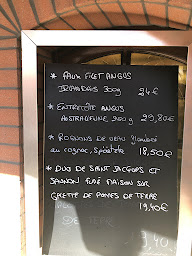 * FAUX FILET ANGUS
IRLANDAIS 300g 24€
* ENTRECÔTE ANGUS
AUSTRALIENNE 300g 29,80€
* ROGNONS DE VEAU flambé
au cognac, Spätzle 18,50€
* DUO DE SAINT JACQUES ET
SAUMON FUMÉ MAISON SUR
GALETTE DE POMMES DE TERRE
19,40€
DE TERRE